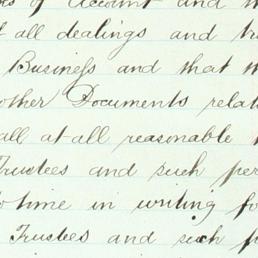 of Account and
all dealings and
Business and that
other Documents relat
all at all reasonable
Trustees and such per
to time in writing fo
Trustees and such